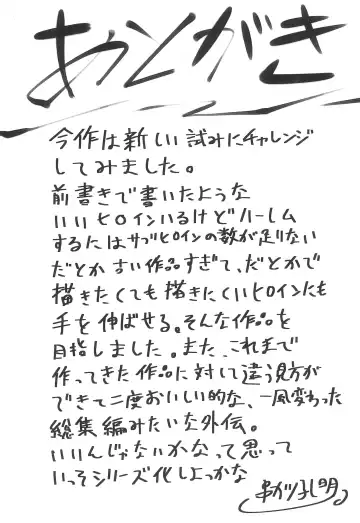 あとがき
今作は新しい試みにチャレンジ
してみました。
前書きで書いたような
いいヒロインいるけどハーレム
するにはサブヒロインの数が足りない
だとか古い作品すぎて、だとかで
描きたくても描きにくいヒロインにも
手を伸ばせる。そんな作品を
目指しました。また、これまで
作ってきた作品に対して違う見方が
できて二度おいしい的な、一風変わった
総集編みたいな外伝。
いいんじゃないかなって思って
いっそシリーズ化しよっかな
串カツ孔明